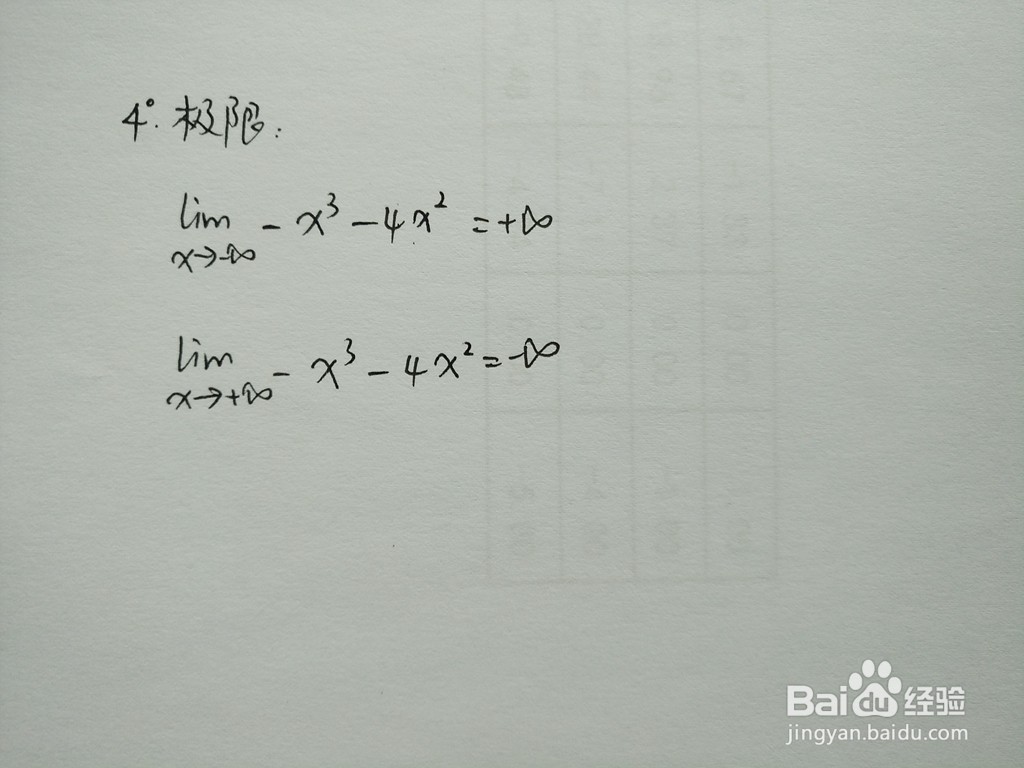 4°. 极限:
lim - x³ - 4x² = +∞
x→-∞
lim - x³ - 4x² = -∞
x→+∞
Baidu经验
jingyan.baidu.com